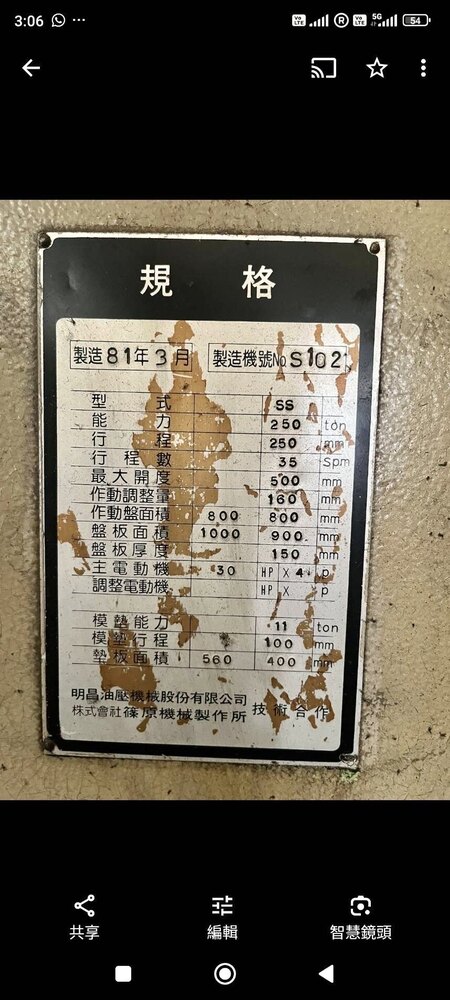 3:06
5G
4F
54
規 格
製造81年3月 製造機號No S102
型式 SS
能力 250 ton
行程 250 mm
行程數 35 Spm
最大開度 500 mm
作動調整量 160 mm
作動盤面積 800 800 mm
盤板面積 1000 900 mm
盤板厚度 150 mm
主電動機 30 HP X 4 P
調整電動機 HP X P
模墊能力 11 ton
模墊行程 100 mm
墊板面積 560 400 mm
明昌油壓機械股份有限公司
株式會社篠原機械製作所 技術合作
共享 編輯 智慧鏡頭